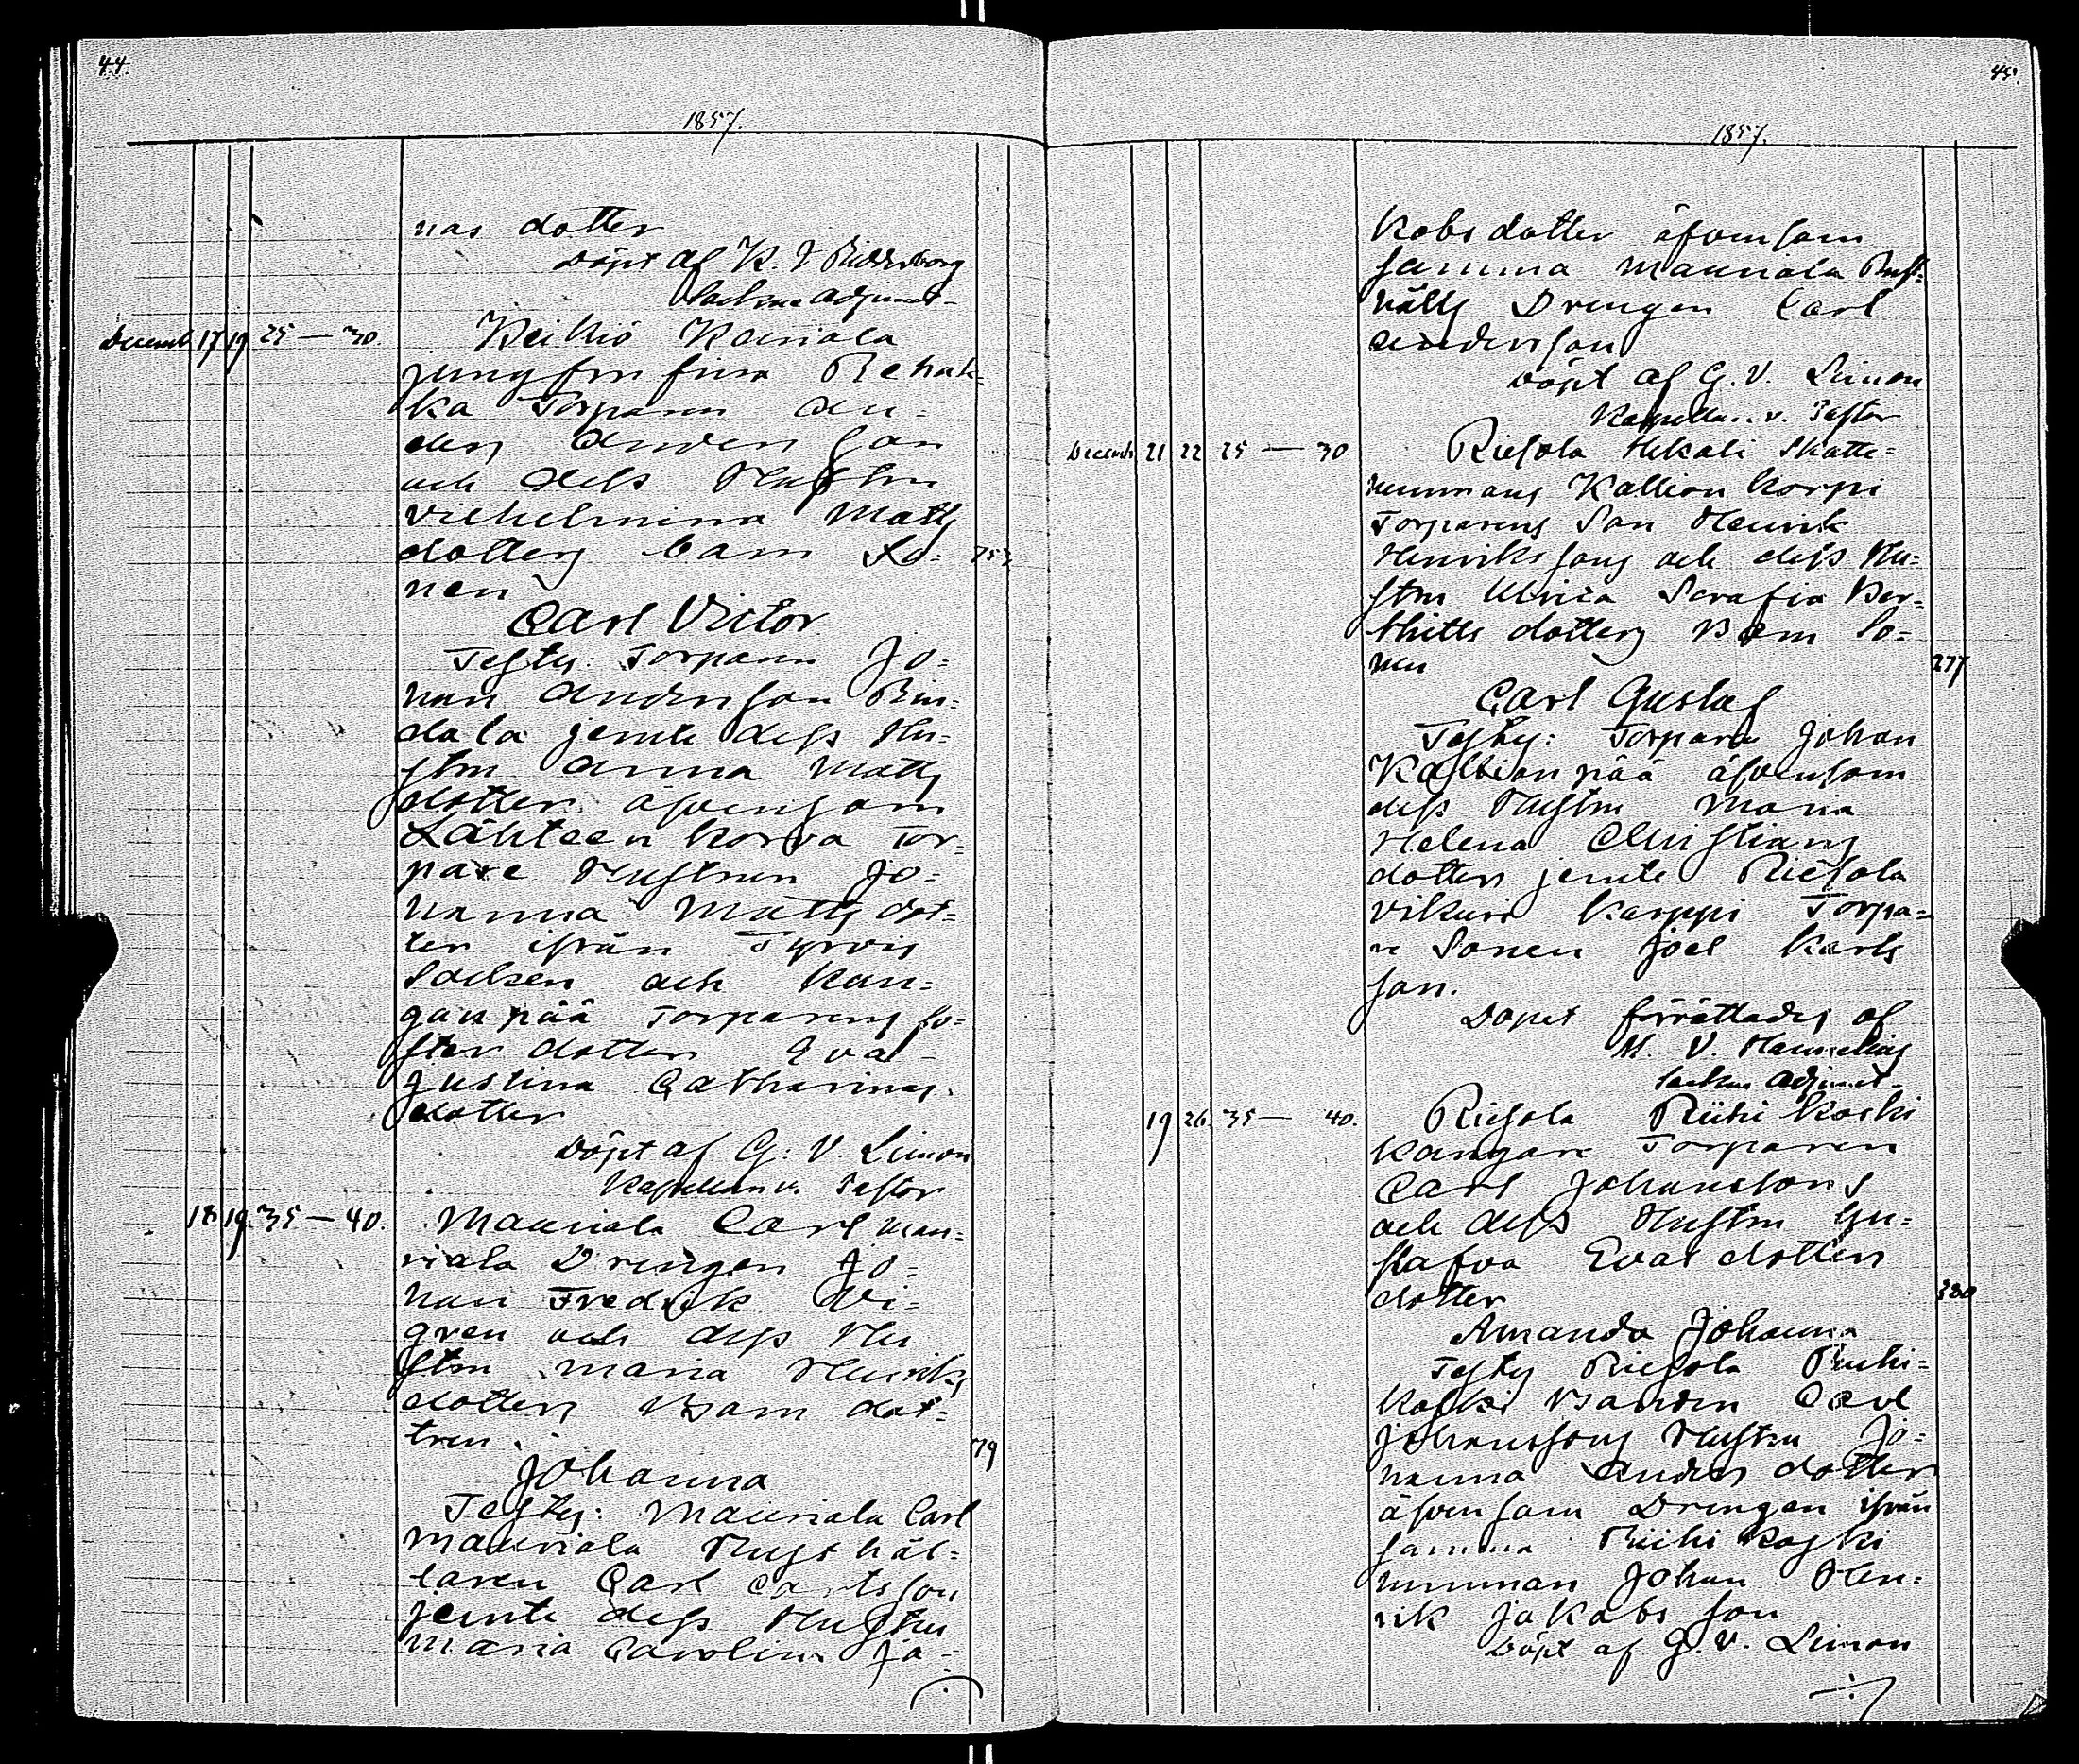 44.
1857.
nas dotter
döpt af K. J.
Sockne adjunct
Decemb 17 19 25 — 30. Keikiö Kauriala
jungfru finna
ka Torparen An=
ders Anders son
och dess Hustru
Vilhelmina Matts
dotters barn So= 753
nen
Carl Victor
Testes: Torparen Jo=
han Andersson Rin=
dala jemte dess Hu=
stru Anna Matts
dotter äfvensom
Lähteen korva Tor=
pare Hustrun Jo=
hanna Matts dot=
ter ifrån Tyrvis
Socken och Kan=
gan pää Torparens fo=
ster dotter Eva
Justina Catharinas
dotter
Döpt af G. V. Limon
Kapellan v. Pastor
18 19. 35 — 40. Mauriala Carl Mau=
riala Drengen Jo=
han Fredrik Vi=
gren och dess Hu
stru Maria Henriks
dotters Barn dot=
tren. 79
Johanna
Testes: Mauriala Carl
Mauriala Rusthål=
laren Carl Carlsson
jemte dess Hustru
Maria Carolina Ja=
45.
1857.
kobs dotter äfvensom
samma Mauriala Rust=
hålls Drengen Carl
Andersson
döpt af G. V. Limon
Kapellan v. Pastor
Decemb 21 22 25 — 30 Riesola Uskali Skatte=
hemmans Kallion korpi
Torparens Son Henrik
Henrikssons och dess Hu=
stru Ulrica Serafia Ber=
thills dotters Barn So=
nen 277
Carl Gustaf
Testes: Torpare Johan
Kallion pää äfvensom
dess Hustru Maria
Helena Christians
dotter jemte Riesola
Vikuri Karppi Torpa=
re Sonen Joel Karls
son.
Dopet förrättades af
M. V. Hannelius
Sockne Adjunct
19 26. 35 — 40. Riesola Riihi koski
Kangare Torparen
Carl Johanssons
och dess Hustru Gu=
stafva Evas dotters
dotter 380
Amanda Johanna
Testes Riesola Riihi=
koski Bonden Carl
Johanssons Hustru Jo=
hanna Anders dotter
äfvensom Drengen ifrån
samma Riihi koski
hemman Johan Hen=
rik Jakobs son
Döpt af G. V. Limon